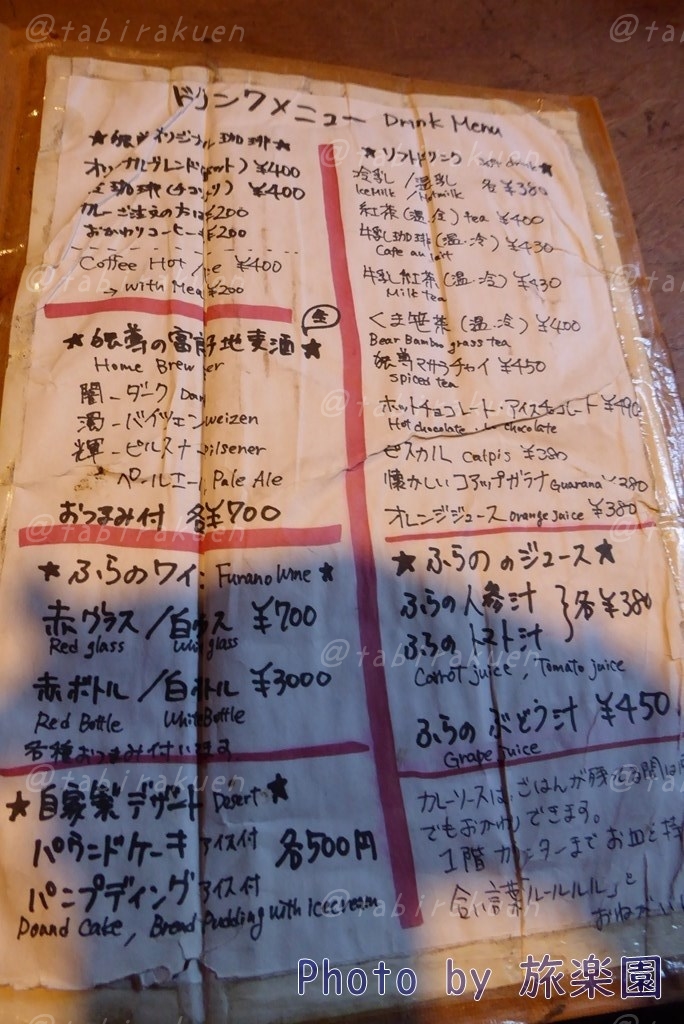 ドリンクメニュー Drink Menu
★唯我オリジナル珈琲★
オリジナルブレンド(ホット) ¥400
珈琲(チコリ) ¥400
カレーご注文の方は ¥200
おかわりコーヒー ¥200
Coffee Hot / Ice ¥400
→ with Meal ¥200
生
★唯我独尊の富良野地麦酒★
Home Brewer
闇-ダーク Dark
濁-バイツェン weizen
輝-ピルスナー pilsener
ペールエール Pale Ale
おつまみ付 各¥700
★ふらのワイン Furano Wine★
赤グラス/白グラス ¥700
Red glass White glass
赤ボトル/白ボトル ¥3000
Red Bottle White Bottle
各種おつまみ付います
★自家製デザート Desert★
パウンドケーキ アイス付 各500円
パンプディング アイス付
Pound Cake, Bread Pudding with Icecream
★ソフトドリンク Soft drink★
冷乳/温乳 各¥380
Ice Milk / Hot milk
紅茶(温・冷) tea ¥400
牛乳珈琲(温・冷) ¥430
Cafe au lait
牛乳紅茶(温・冷) ¥430
Milk tea
くま笹茶(温・冷) ¥400
Bear Bamboo grass tea
マサラチャイ ¥450
spiced tea
ホットチョコレート・アイスチョコレート
Hot chocolate . Ice chocolate
ピスカル Calpis ¥380
懐かしいコアップガラナ Guarana ¥380
オレンジジュース orange juice ¥380
★ふらののジュース★
ふらの人参汁 } 各¥380
ふらのトマト汁
Carrot juice, Tomato juice
ふらのぶどう汁 ¥450
Grape juice
カレーソースは、ごはんが残ってる間は
でもおかわりできます。
1階カウンターまでお皿を持
合い言葉「ルールルル」と
おねがいし
@tabirakuen
Photo by 旅楽園